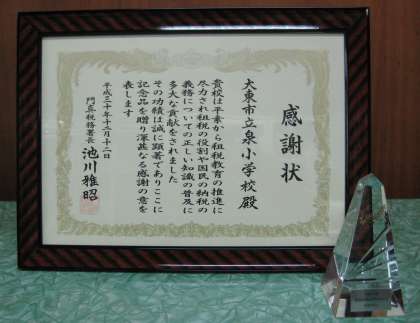 感謝状
大東市立泉小学校殿
貴校は平素から租税教育の推進に
尽力され租税の役割や国民の納税の
義務についての正しい知識の普及に
多大な貢献をされました
その功績は誠に顕著でありここに
記念品を贈り深甚なる感謝の意を
表します
平成三十年十二月十二日
門真税務署長 池川雅昭